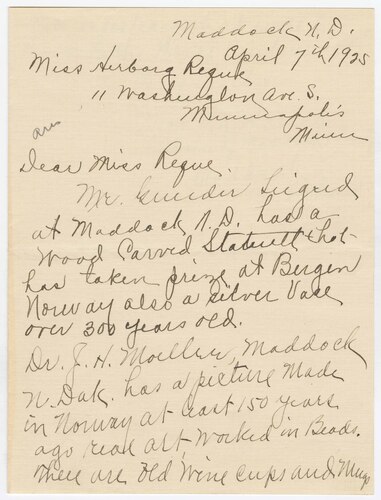 Maddock N.D.
April 7th 1925
Miss Herborg Reque
11 Washington Ave. S.
Minneapolis
Minn
ans
Dear Miss Reque,
Mr. Gunder
at Maddock N.D. has a
Wood Carved Statuett that
has taken prize at Bergen
Norway also a silver Vase
over 300 years old.
Dr. J. H. Moeller, Maddock
N. Dak. has a picture Made
in Norway at least 150 years
ago, real art, Worked in Beads.
there are old Wine cups and Mugs